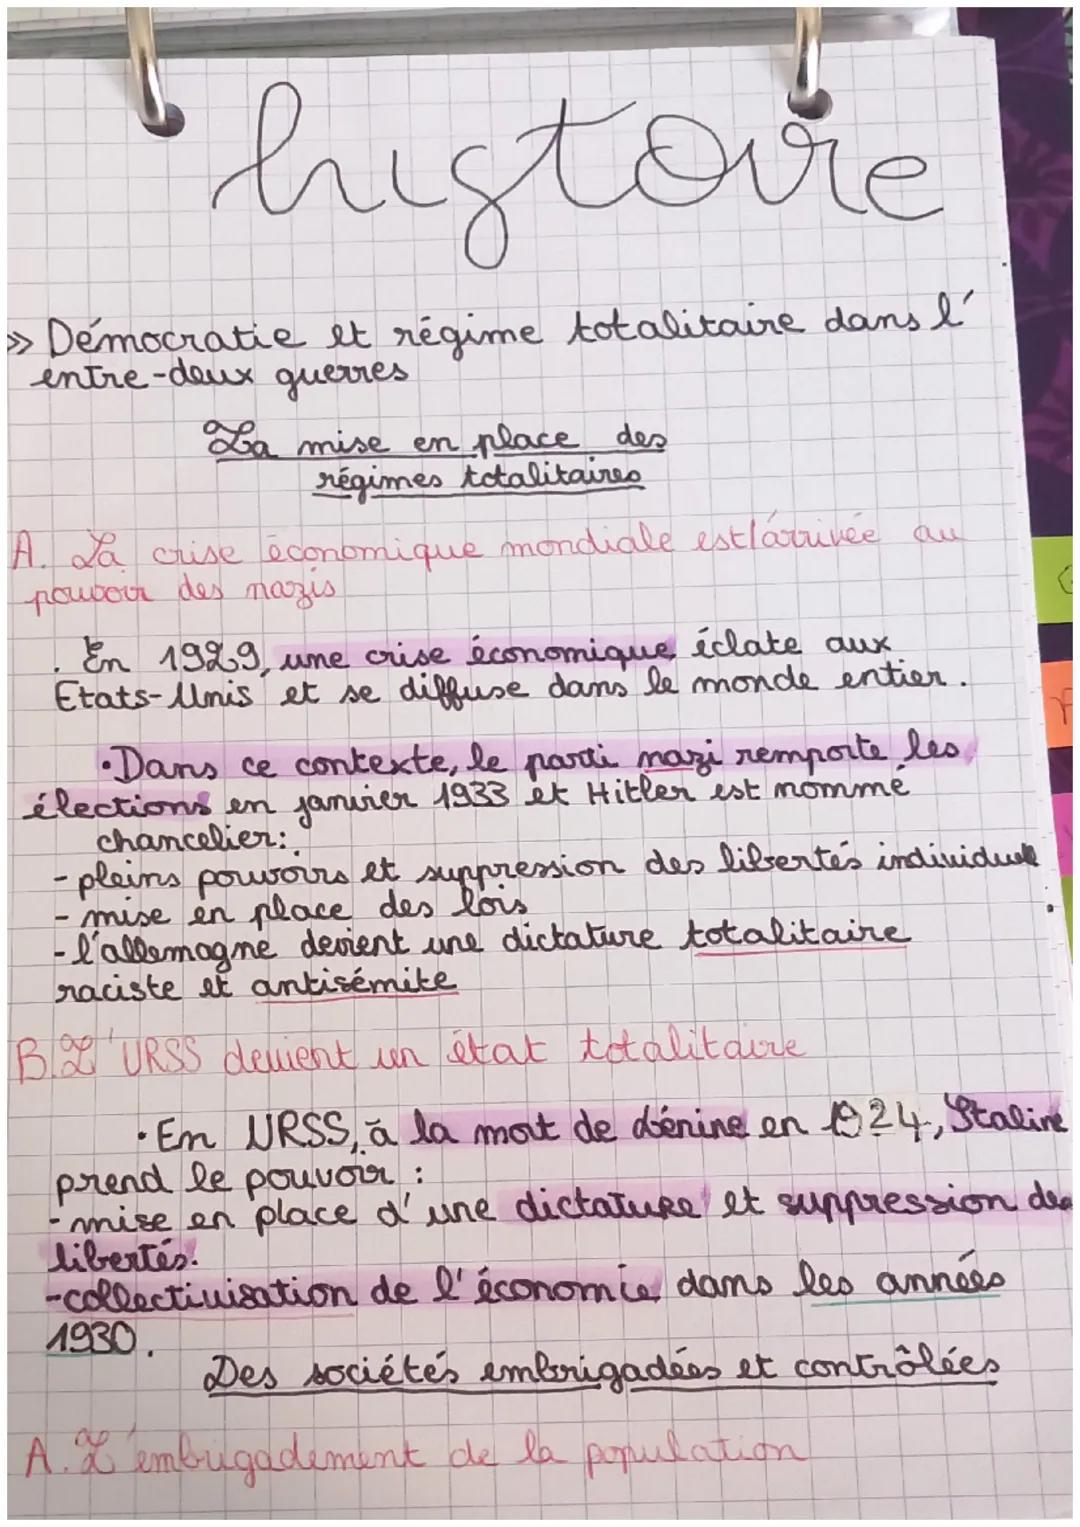 histoire
>> Démocratie et régime totalitaire dans l'
entre-deux guerres
La mise en place des
régimes totalitaires
A. La crise économique mondiale est l'arrivée au
pouvoir des nazis
. En 1929, une crise économique, éclate aux
Etats-Unis et se diffuse dans le monde entier.
• Dans ce contexte, le parti nazi remporte les
élections en janvier 1933 et Hitler est nommé
chancelier:
- pleins pouvoirs et suppression des libertés individuell
- mise en place des lois
- l'allemagne devient une dictature totalitaire
raciste et antisémite
B. L'URSS devient un état totalitaire
• En URSS, à la mort de Lénine en 1924, Staline
prend le pouvoir :
- mise en place d'une dictature et suppression des
libertés.
- collectivisation de l'économie dans les années
1930.
Des sociétés embrigadées et contrôlées
A. L'embrigadement de la population